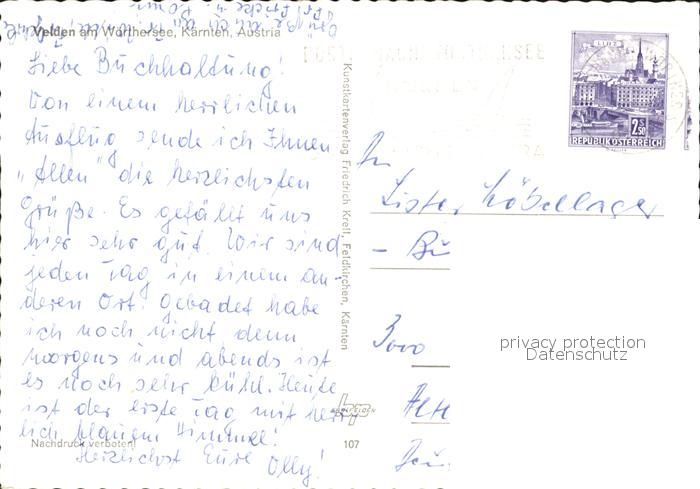 Velden am Wörthersee, Kärnten, Austria
Liebe Buchhaltung!
Von einem herrlichen
Ausflug sende ich Ihnen
„Allen" die herzlichsten
Grüße. Es gefällt uns
hier sehr gut. Wir sind
jeden Tag in einem an-
deren Ort. Gebadet habe
ich noch nicht denn
morgens und abends ist
es noch sehr kühl. Heute
ist der erste Tag mit herr-
lich blauem Himmel!
Nachdruck verboten!
107
Herzlichst Eure Olly!
Kunstkartenverlag Friedrich Krell, Feldkirchen, Kärnten
LINZ
2.50
REPUBLIK ÖSTERREICH
An
Lister Möbellager
- Bü
3000
privacy protection
Datenschutz